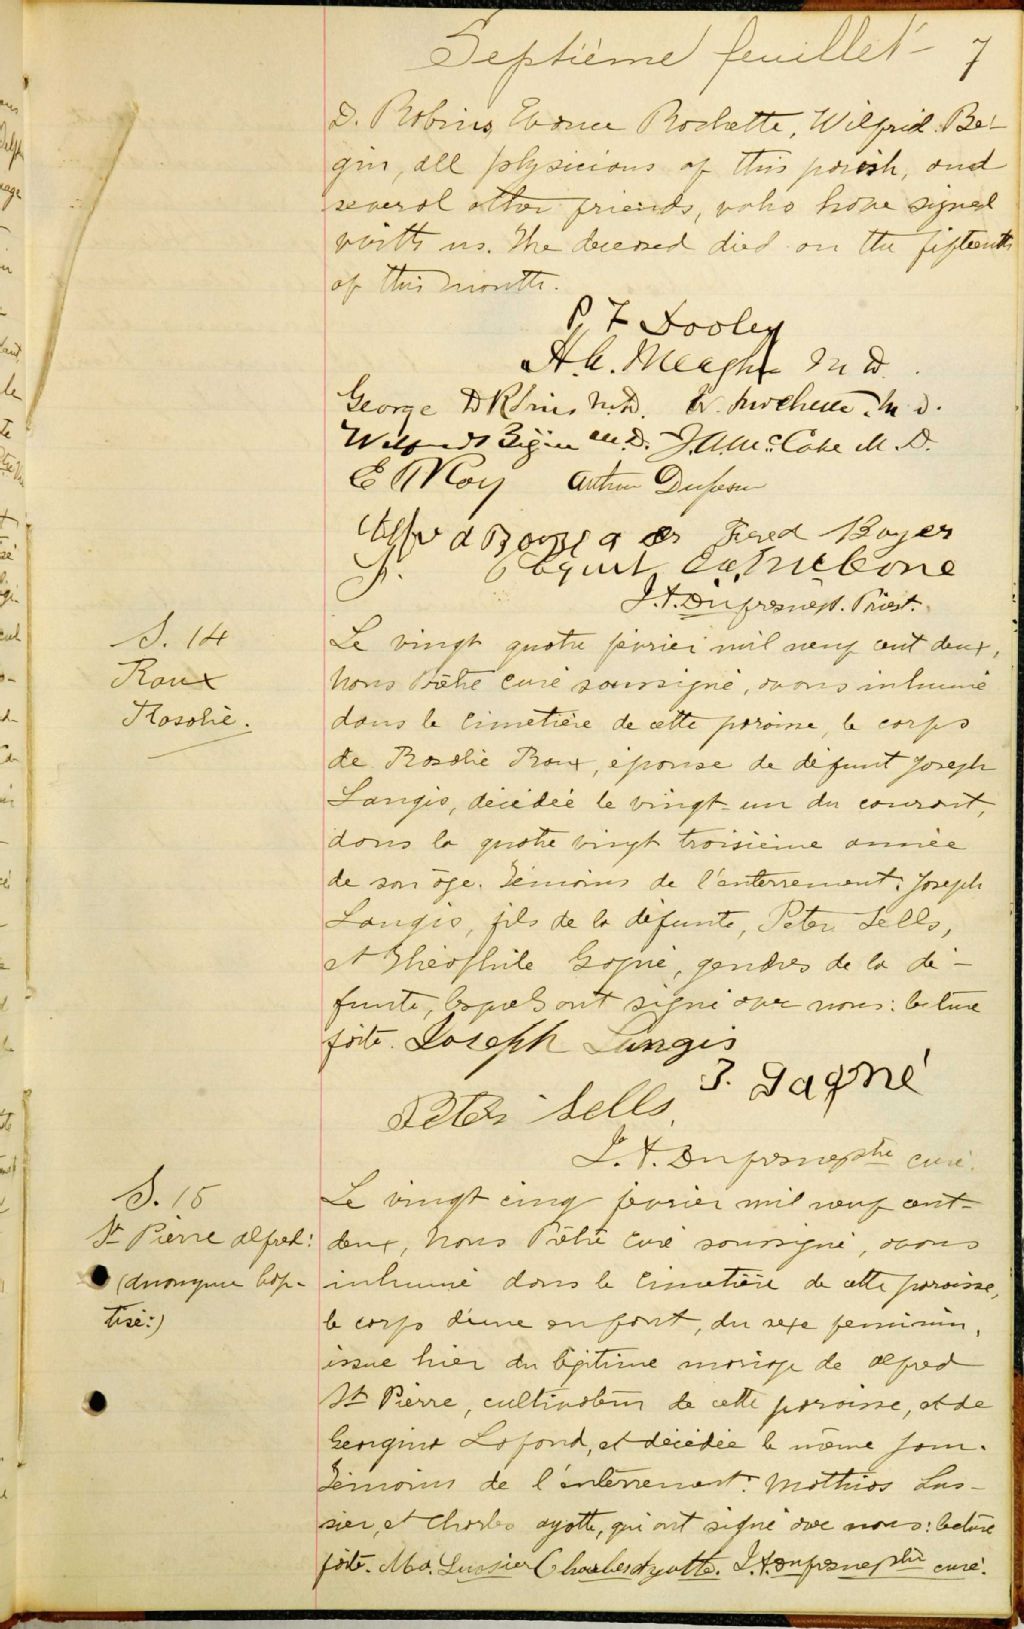 Septième feuillet 7
D. Robins, Rochette, Wilfrid Be-
gin, all physicians of this parish, and
several other friends, who have signed
with us. The deceased died on the fifteenth
of this month.
P F Dooley
H. A. Meagher M D.
George D Robins M.D. W. Rochette M. D.
Wilfrid Bégin M.D. J. A. McCabe M. D.
E Roy Arthur Dufresne
Alfred Fred Boyer
J. McCone
J. A. Dufresne ptr. Priest.
S. 14
Roux
Rosalie.
Le vingt quatre fevrier mil neuf cent deux,
Nous Prêtre Curé soussigné, avons inhumé
dans le cimetière de cette paroisse, le corps
de Rosalie Roux, épouse de défunt Joseph
Langis, décédée le vingt-un du courant,
dans la quatre vingt troisième année
de son âge. Témoins de l'enterrement: Joseph
Langis, fils de la défunte, Peter Sells,
et Théophile Gagné, gendres de la dé-
funte, lesquels ont signé avec nous: lecture
faite. Joseph Langis
T. Gagné
Peter Sells.
J. A. Dufresne ptre curé.
S. 15
St Pierre Alfred:
(Anonyme bap-
tisé:)
Le vingt cinq fevrier mil neuf cent-
deux, Nous Prêtre Curé soussigné, avons
inhumé dans le Cimetière de cette paroisse,
le corps d'une enfant, du sexe feminin,
issue hier du légitime mariage de Alfred
St Pierre, cultivateur de cette paroisse, et de
Georgina Lafond, et décédée le même jour.
Témoins de l'enterrement: Mathias Lus-
sier, et Charles Ayotte, qui ont signé avec nous: lecture
faite. Ma. Lussier Charles Ayotte. J. A. Dufresne ptre curé.